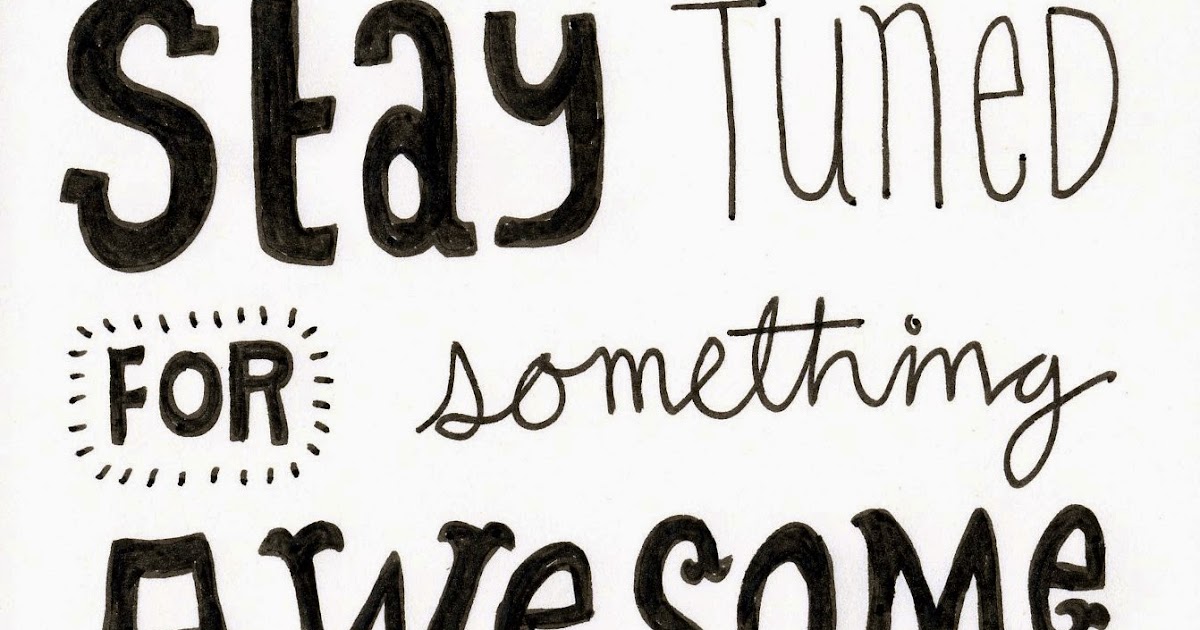 Stay TUNED
FOR something
AWESOME